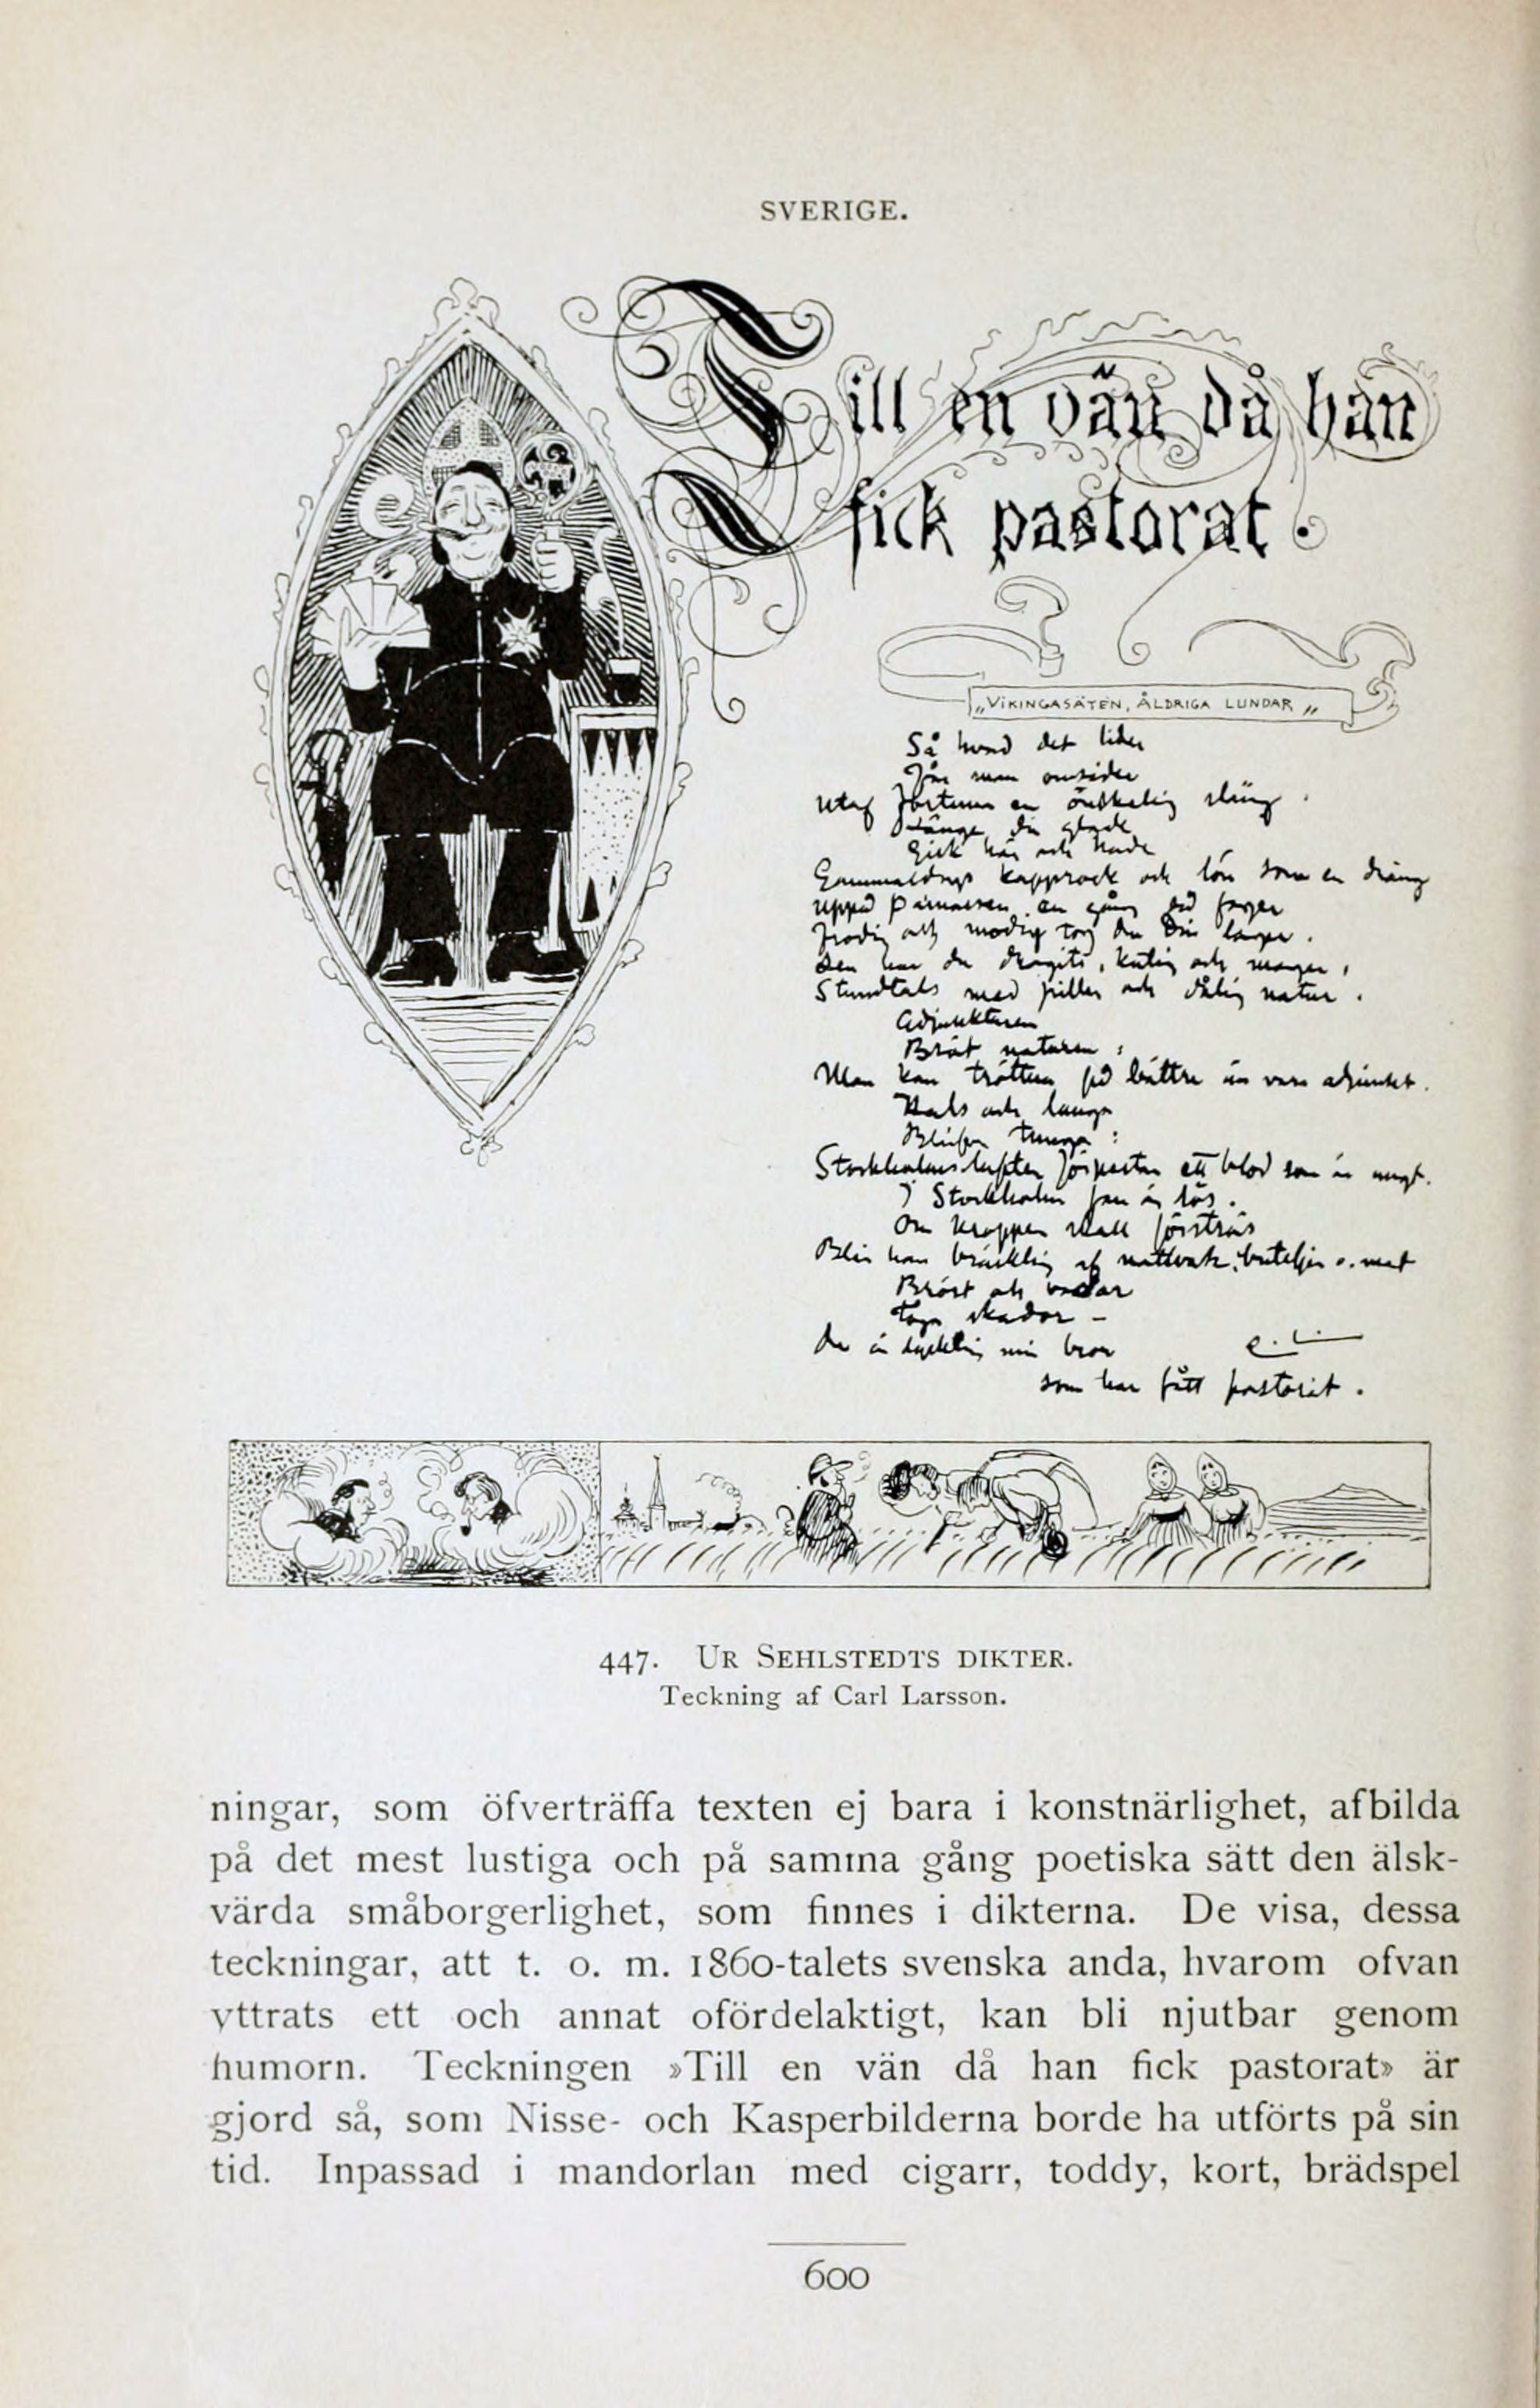 SVERIGE.
Till en vän då han
fick pastorat.
„VIKINGASÄTEN, ÅLDRIGA LUNDAR„
Så hvad det lider
Får man omsider
Utaf fortuna en önskelig släng.
Länge du glade
Gick här och hade
Gammaldags kapprock och lön som en dräng
Uppå Parnassen en gång på
Frodig och modig tog du Din lager.
Sen har du dragits, kutig och mager,
Stundtals med piller och dålig natur.
Adjunkturen
Bröt naturen:
Man kan tröttna på bättre än vara adjunkt.
Hals och lunga
Blifva tunga:
Stockholmsluften förpestar ett blod som är ungt.
I Stockholm fan är lös.
Om kroppen skall förströs
Blir han bräcklig af nattvak, buteljer o. mat
Bröst och vador
Taga skador –
Du är lycklig min bror
som har fått pastorat.
C. L.
447. UR SEHLSTEDTS DIKTER.
Teckning af Carl Larsson.
ningar, som öfverträffa texten ej bara i konstnärlighet, afbilda
på det mest lustiga och på samma gång poetiska sätt den älsk-
värda småborgerlighet, som finnes i dikterna. De visa, dessa
teckningar, att t. o. m. 1860-talets svenska anda, hvarom ofvan
yttrats ett och annat ofördelaktigt, kan bli njutbar genom
humorn. Teckningen »Till en vän då han fick pastorat» är
gjord så, som Nisse- och Kasperbilderna borde ha utförts på sin
tid. Inpassad i mandorlan med cigarr, toddy, kort, brädspel
600